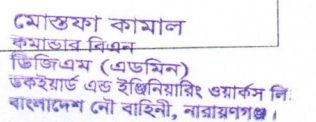 মোস্তফা কামাল
কমান্ডার বিএন
ডিজিএম (এডমিন)
ডকইয়ার্ড এন্ড ইঞ্জিনিয়ারিং ওয়ার্কস লি:
বাংলাদেশ নৌ বাহিনী, নারায়ণগঞ্জ।